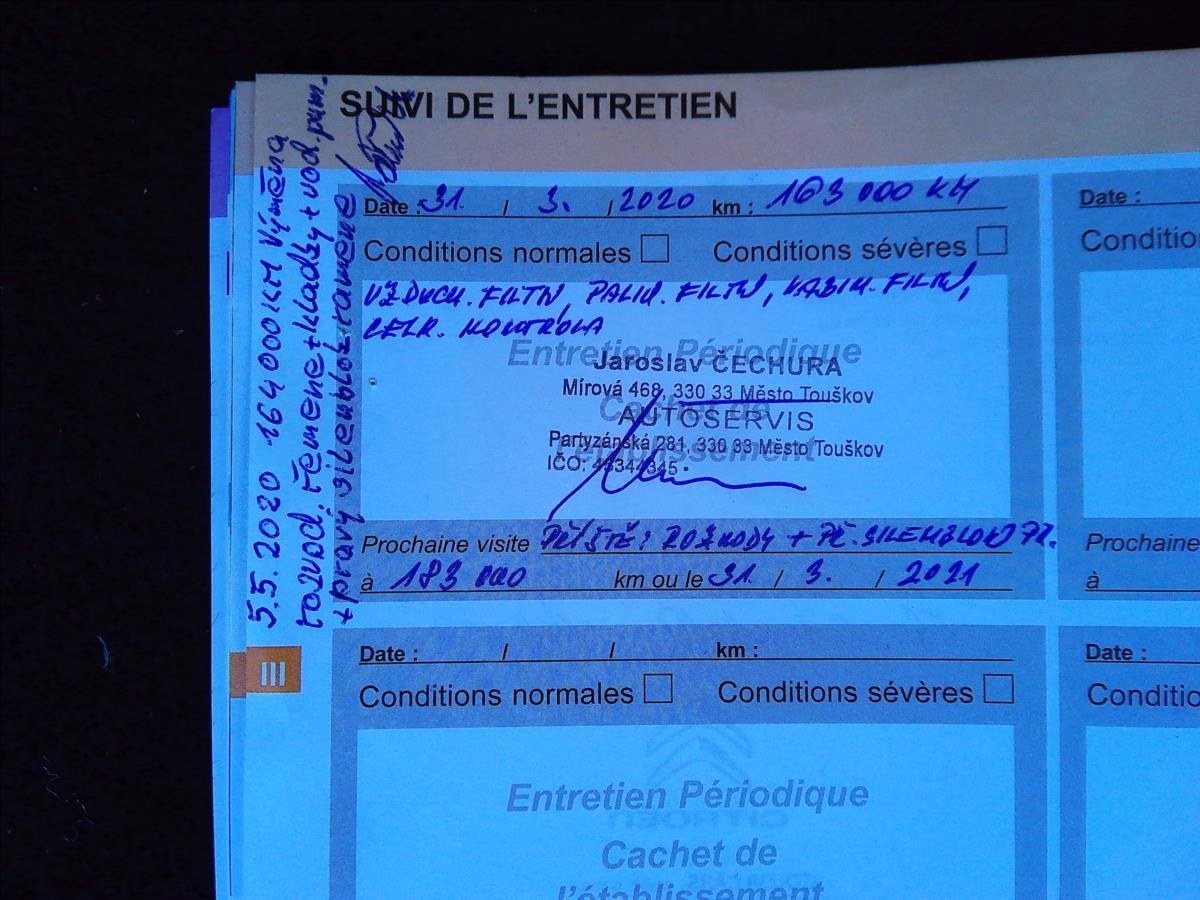 SUIVI DE L'ENTRETIEN
5.5.2020 164000KM Výměna
rozvod. řemene+kladky+vod.pum.
+pravý silenblok ramene
Date : 31. / 3. / 2020 km : 163 000 KM
Conditions normales
Conditions sévères
VZDUCH. FILTR, PALIV. FILTR, KABIN. FILTR,
CELK. KONTROLA
Entretien Périodique
Cachet de
l'établissement
Jaroslav ČECHURA
Mírová 468, 330 33 Město Touškov
AUTOSERVIS
Partyzánská 281, 330 33 Město Touškov
IČO: 45344345
Prochaine visite PŘÍŠTĚ: ROZVODY + PŘ. SILENBLOKY PŘ.
à 183 000 km ou le 31. / 3. / 2021
Date :
Conditio
Prochaine
à
III
Date : / / km :
Conditions normales
Conditions sévères
Entretien Périodique
Cachet de
l'établissement
CITROËN
Date :
Conditio